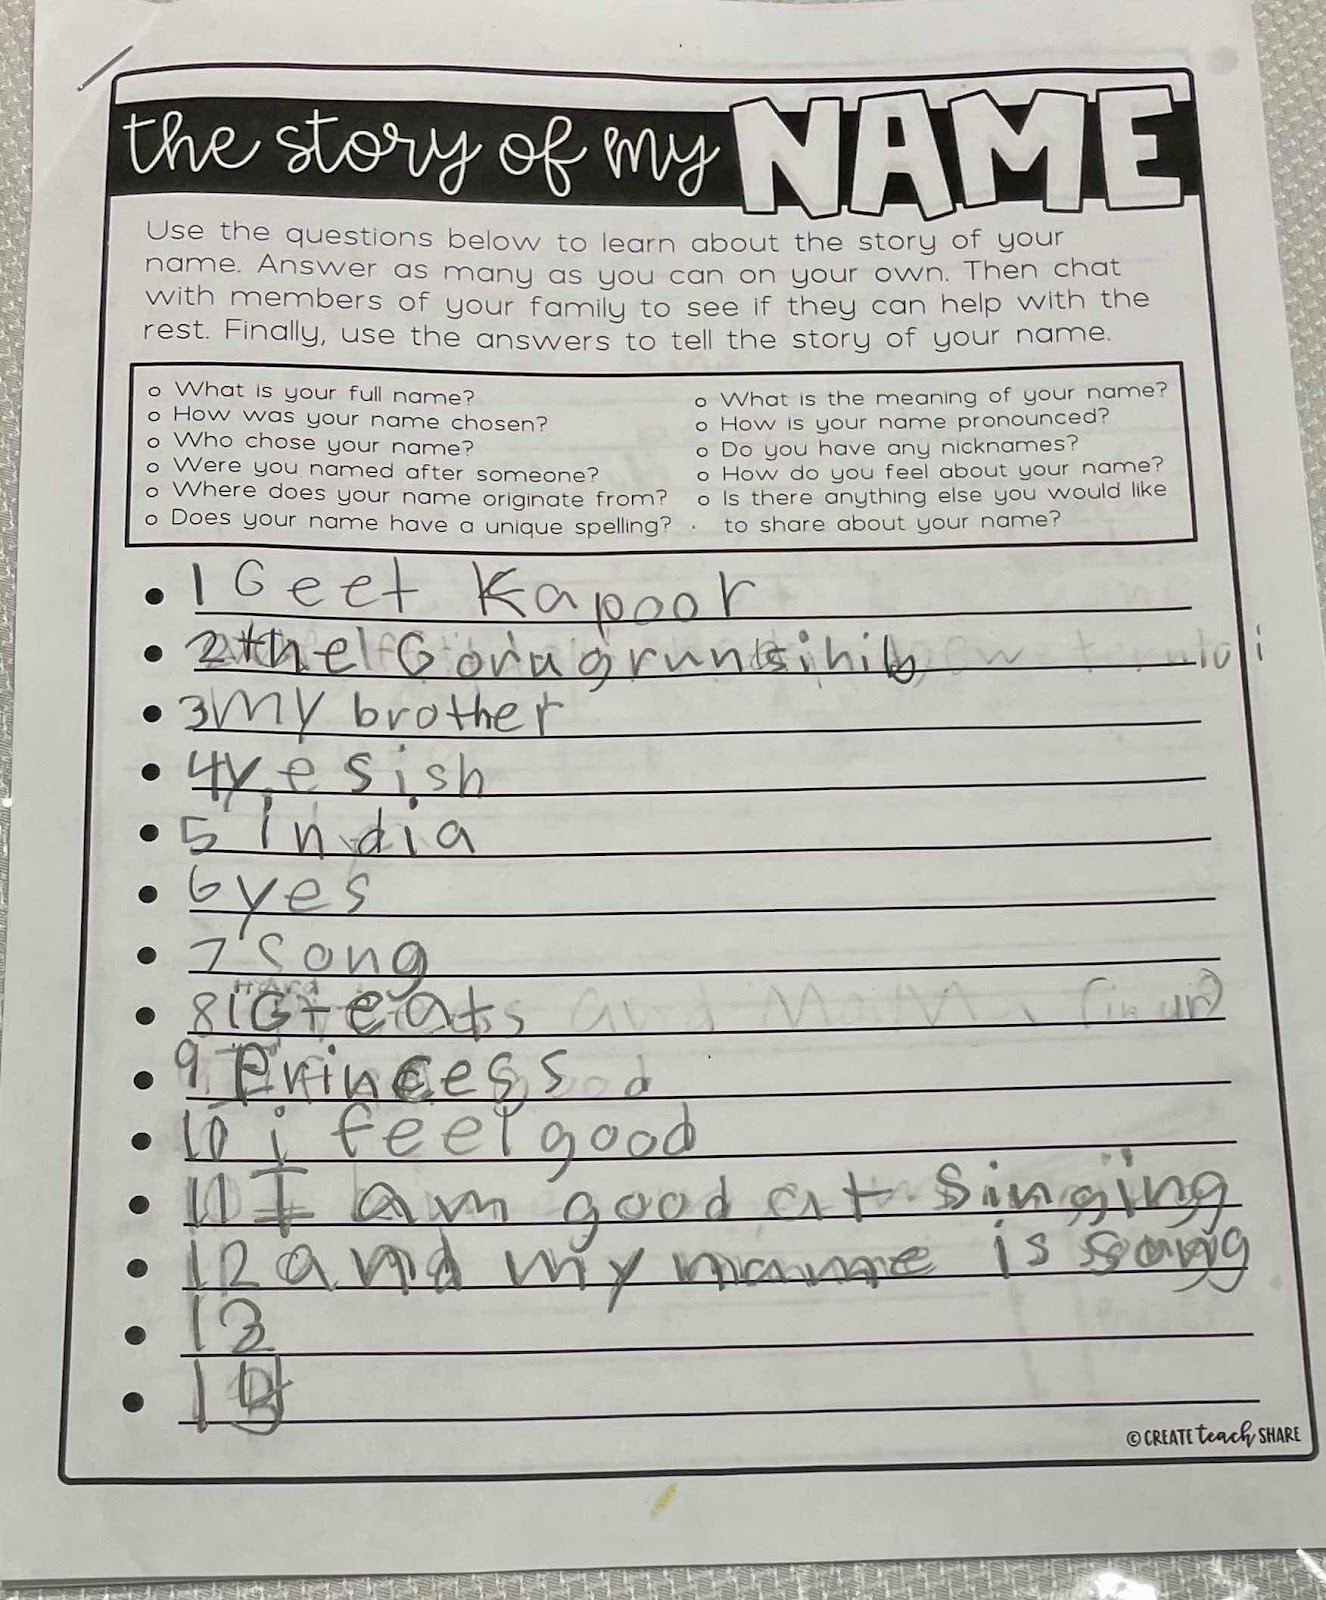 the story of my NAME
Use the questions below to learn about the story of your
name. Answer as many as you can on your own. Then chat
with members of your family to see if they can help with the
rest. Finally, use the answers to tell the story of your name.
o What is your full name?
o How was your name chosen?
o Who chose your name?
o Were you named after someone?
o Where does your name originate from?
o Does your name have a unique spelling?
o What is the meaning of your name?
o How is your name pronounced?
o Do you have any nicknames?
o How do you feel about your name?
o Is there anything else you would like
to share about your name?
1 Geet Kapoor
2 the
3 my brother
4 yesish
5 India
6 yes
7 song
8
9 Princess
10 i feel good
11 I am good at singing
12 and my name is song
13
14
© CREATE teach SHARE